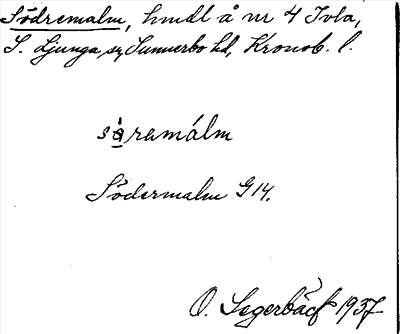 Södremalm, hmdl å nr 4 Ivla,
S. Ljunga sn, Sunnerbo hd, Kronob. l.
sø̀ramálm
Södermalm G14.
O. Segerbäck 1937